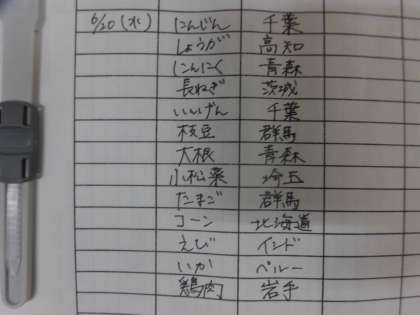 6/20(水) にんじん 千葉
しょうが 高知
にんにく 青森
長ねぎ 茨城
いんげん 千葉
枝豆 群馬
大根 青森
小松菜 埼玉
たまご 群馬
コーン 北海道
えび インド
いか ペルー
鶏肉 岩手